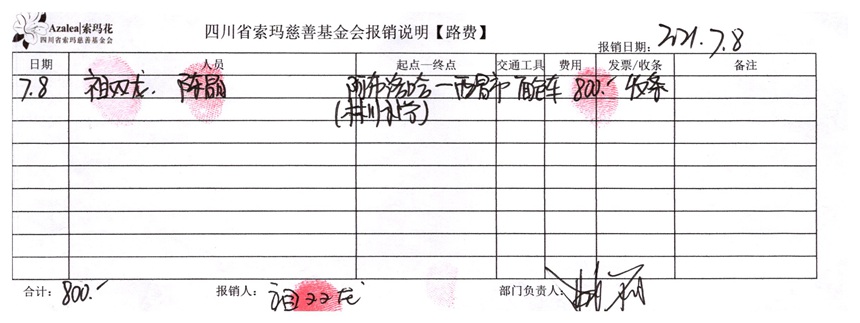 Azalea|索玛花
四川省索玛慈善基金会
四川省索玛慈善基金会报销说明【路费】
报销日期: 2021.7.8
日期 人员 起点—终点 交通工具 费用 发票/收条 备注
7.8 祖双龙. 陈 阿布洛哈—西昌市 面包车 800.- 收条
合计: 800.- 报销人: 祖双龙 部门负责人: